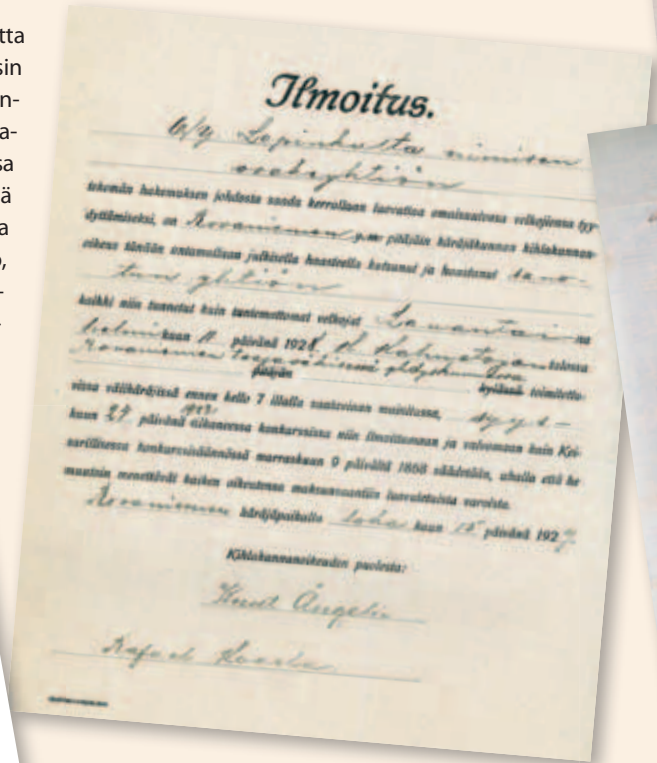 tta
sin
n-
a-
sa
ä
a
o,
-
Ilmoitus.
O/Y Lapinkulta nimisen
osakeyhtiön
tekemän hakemuksen johdosta saada kerrallaan luovuttaa omaisuutensa velkojiensa tyy-
dyttämiseksi, on Rovaniemen y.m. pitäjäin käräjäkunnan kihlakunnan-
oikeus tänään antamallaan julkisella haasteella kutsunut ja haastanut sano-
tun yhtiön
kaikki niin tunnetut kuin tuntemattomat velkojat Lauantai na
helmi kuun 11 päivänä 1928 talossa
Rovaniemen
pitäjän kylässä toimitetta-
vissa välikäräjissä ennen kello 7 illalla saataviaan mainitussa, syys-
kuun 27 päivänä alkaneessa konkurssissa niin ilmoittamaan ja valvomaan kuin Kei-
sarillisessa konkurssisäännössä marraskuun 9 päivältä 1868 säädetään, uhalla että he
muutoin menettävät kaiken oikeutensa maksunsaantiin luovutetuista varoista.
Rovaniemen käräjäpaikalla loka kuun 15 päivänä 1927
Kihlakunnanoikeuden puolesta:
Knut Ängeslevä
Rafael